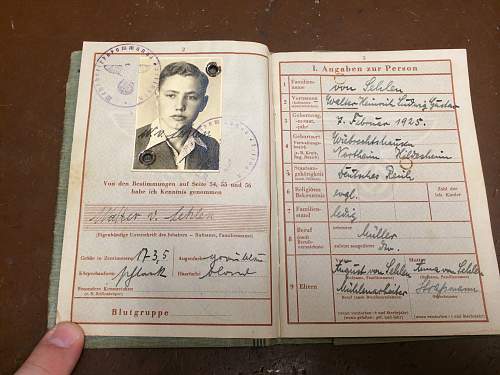 2
Von den Bestimmungen auf Seite 54, 55 und 56
habe ich Kenntnis genommen
Walter v. Sehlen
(Eigenhändige Unterschrift des Inhabers — Rufname, Familienname)
Größe in Zentimetern 173,5
Augenfarbe
Körpergestalt schlank
Haarfarbe blond
Besondere Kennzeichen
Blutgruppe
I. Angaben zur Person
1 Familienname von Sehlen
2 Vornamen Walter Heinrich Ludwig Gustav
3 Geburtstag, -monat, -jahr 7. Februar 1925.
4 Geburtsort Wiebrechtshausen
Northeim Hildesheim
5 Staatsangehörigkeit Deutsches Reich
6 Religiöses Bekenntnis evgl. Zahl der leb. Kinder
7 Familienstand ledig
8 Beruf Müller
9 Eltern
August von Sehlen
Anna von Sehlen
Mühlenarbeiter